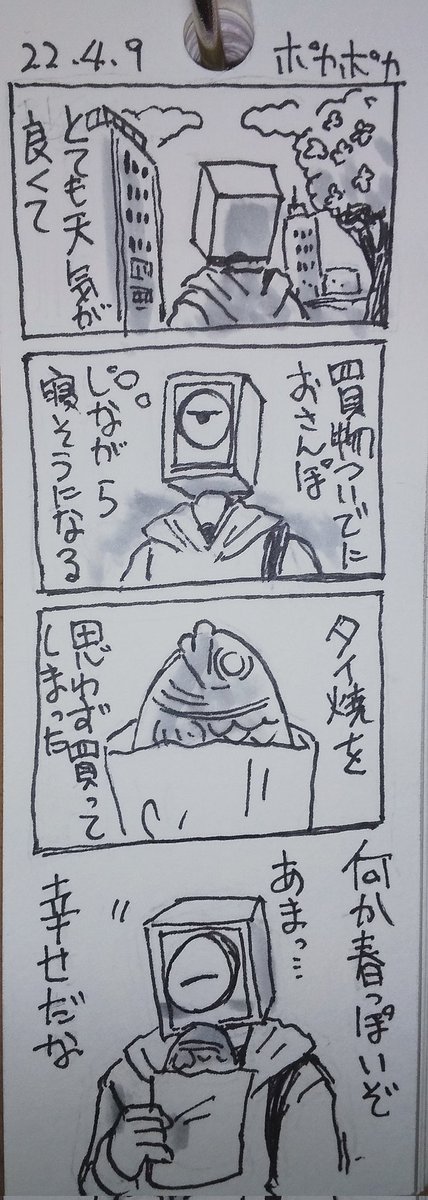 22.4.9
ポカポカ
とても天気が
良くて
買物ついでに
おさんぽ
しながら
寝そうになる
タイ焼を
思わず買って
しまった
何か春っぽいぞ
あまっ…
幸せだな